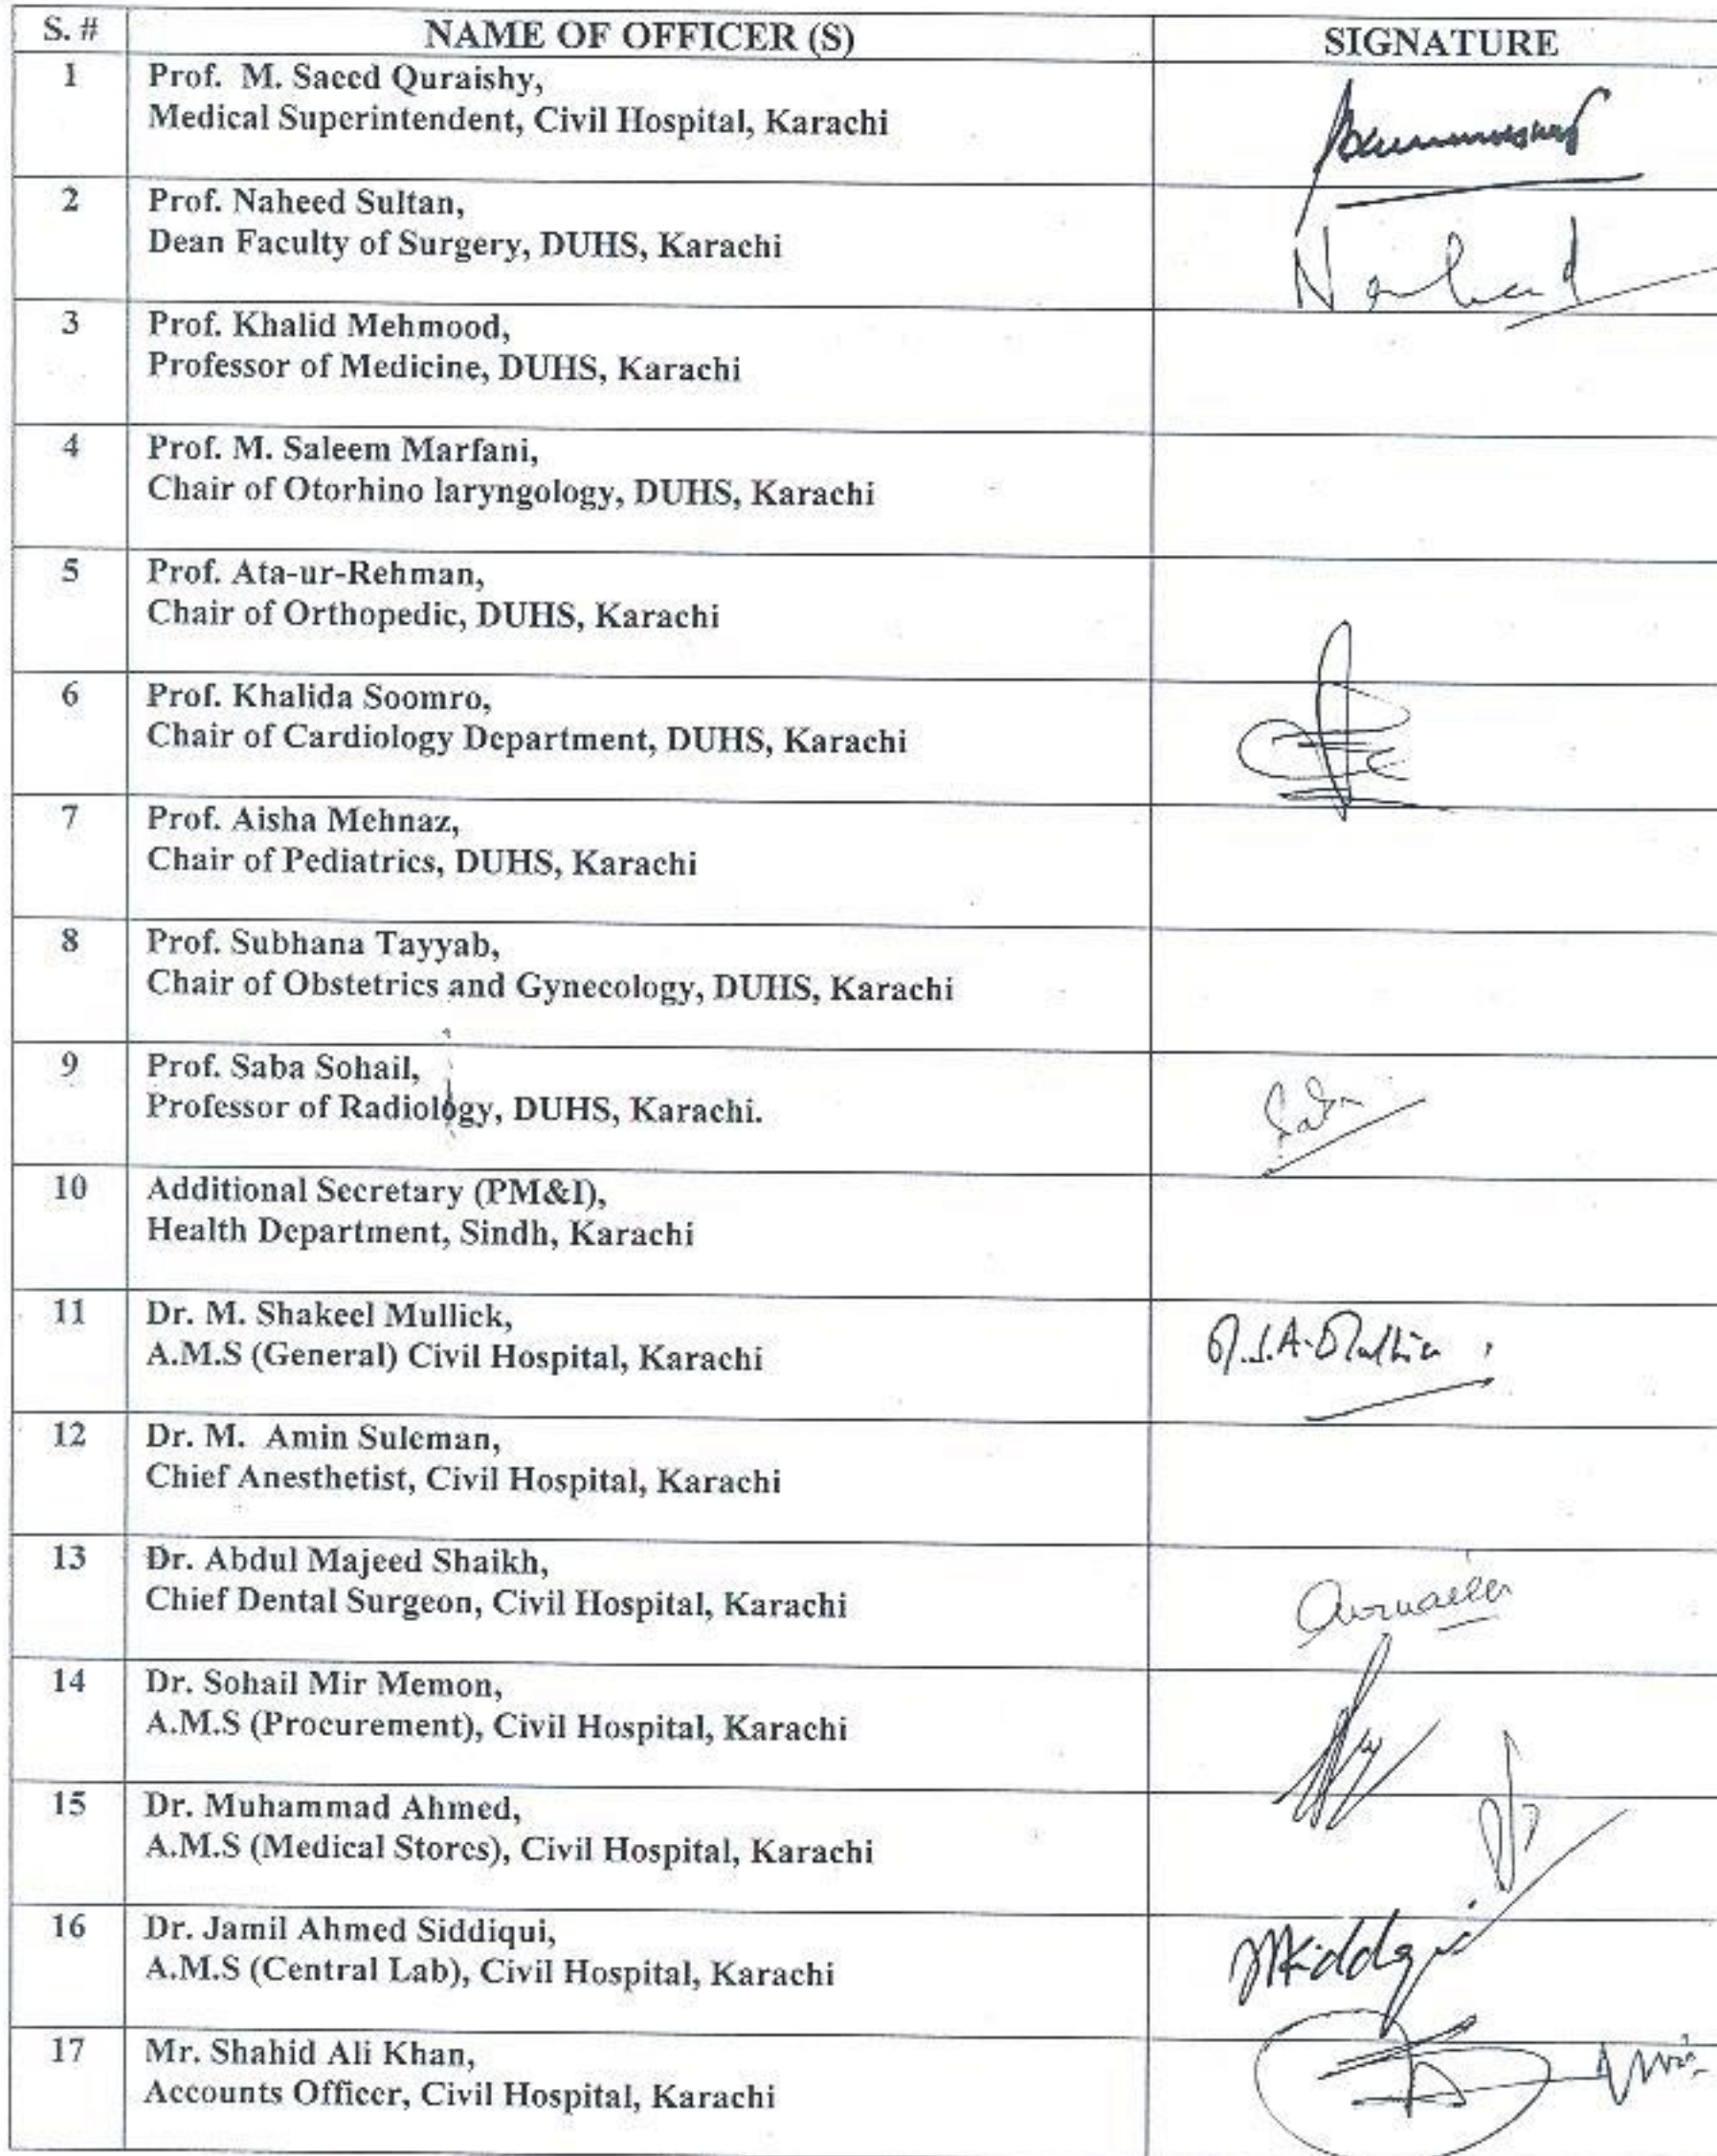 S. # NAME OF OFFICER (S) SIGNATURE
1 Prof. M. Saeed Quraishy,
Medical Superintendent, Civil Hospital, Karachi
2 Prof. Naheed Sultan,
Dean Faculty of Surgery, DUHS, Karachi
3 Prof. Khalid Mehmood,
Professor of Medicine, DUHS, Karachi
4 Prof. M. Saleem Marfani,
Chair of Otorhino laryngology, DUHS, Karachi
5 Prof. Ata-ur-Rehman,
Chair of Orthopedic, DUHS, Karachi
6 Prof. Khalida Soomro,
Chair of Cardiology Department, DUHS, Karachi
7 Prof. Aisha Mehnaz,
Chair of Pediatrics, DUHS, Karachi
8 Prof. Subhana Tayyab,
Chair of Obstetrics and Gynecology, DUHS, Karachi
9 Prof. Saba Sohail,
Professor of Radiology, DUHS, Karachi.
10 Additional Secretary (PM&I),
Health Department, Sindh, Karachi
11 Dr. M. Shakeel Mullick,
A.M.S (General) Civil Hospital, Karachi
12 Dr. M. Amin Suleman,
Chief Anesthetist, Civil Hospital, Karachi
13 Dr. Abdul Majeed Shaikh,
Chief Dental Surgeon, Civil Hospital, Karachi
14 Dr. Sohail Mir Memon,
A.M.S (Procurement), Civil Hospital, Karachi
15 Dr. Muhammad Ahmed,
A.M.S (Medical Stores), Civil Hospital, Karachi
16 Dr. Jamil Ahmed Siddiqui,
A.M.S (Central Lab), Civil Hospital, Karachi
17 Mr. Shahid Ali Khan,
Accounts Officer, Civil Hospital, Karachi